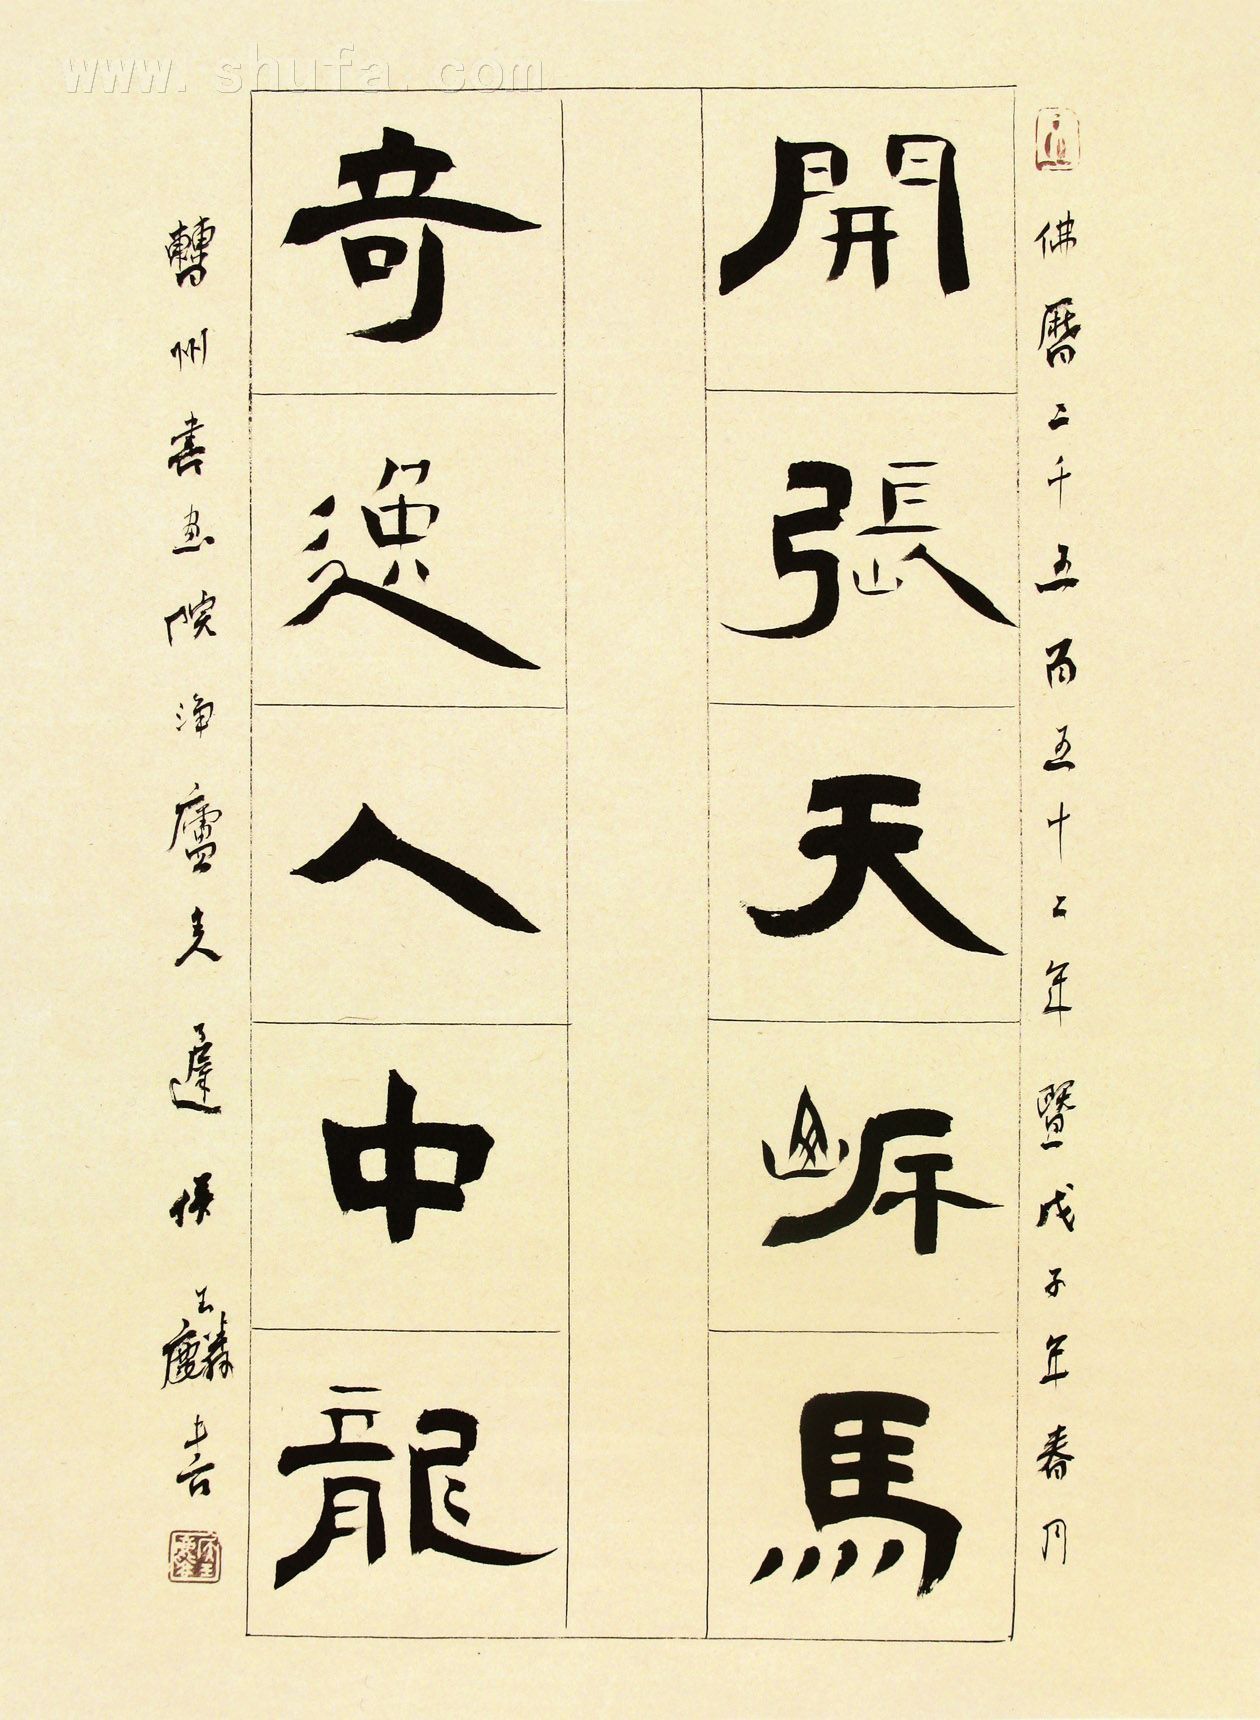 www.shufa.com
佛曆二千五百五十二年暨戊子年春月
開張天岸馬
奇逸人中龍
州書画院淨廬主遲侯玉麟書